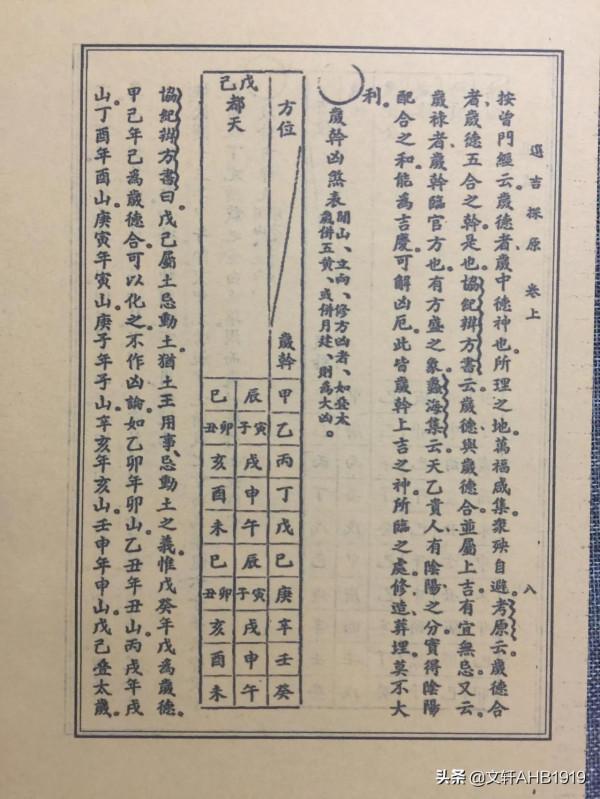 選吉探原 卷上 八
按曾門經云歲德者歲中德神也所理之地萬福咸集衆殃自避考原云歲德合
者歲德五合之幹是也協紀辨方書云歲德與歲德合並屬上吉有宜無忌又云
歲祿者歲幹臨官方也有方盛之象蠡海集云天乙貴人有陰陽之分實得陰陽
配合之和能為吉慶可解凶厄此皆歲幹上吉之神所臨之處修造葬埋莫不大
利
歲幹凶煞表 開山、立向、修方凶者、如疊太
歲併五黃、或併月建、則為大凶。
方位 歲幹 甲 乙 丙 丁 戊 己 庚 辛 壬 癸
戊己都天 辰 寅子 戌 申 午 辰 寅子 戌 申 午
巳 卯丑 亥 酉 未 巳 卯丑 亥 酉 未
協紀辨方書曰戊己屬土忌動土猶土王用事忌動土之義惟戊癸年戊為歲德
甲己年己為歲德合可以化之不作凶論如乙卯年卯山乙丑年丑山丙戌年戌
山丁酉年酉山庚寅年寅山庚子年子山辛亥年亥山壬申年申山戊己疊太歲
头条 @文轩AHB1919